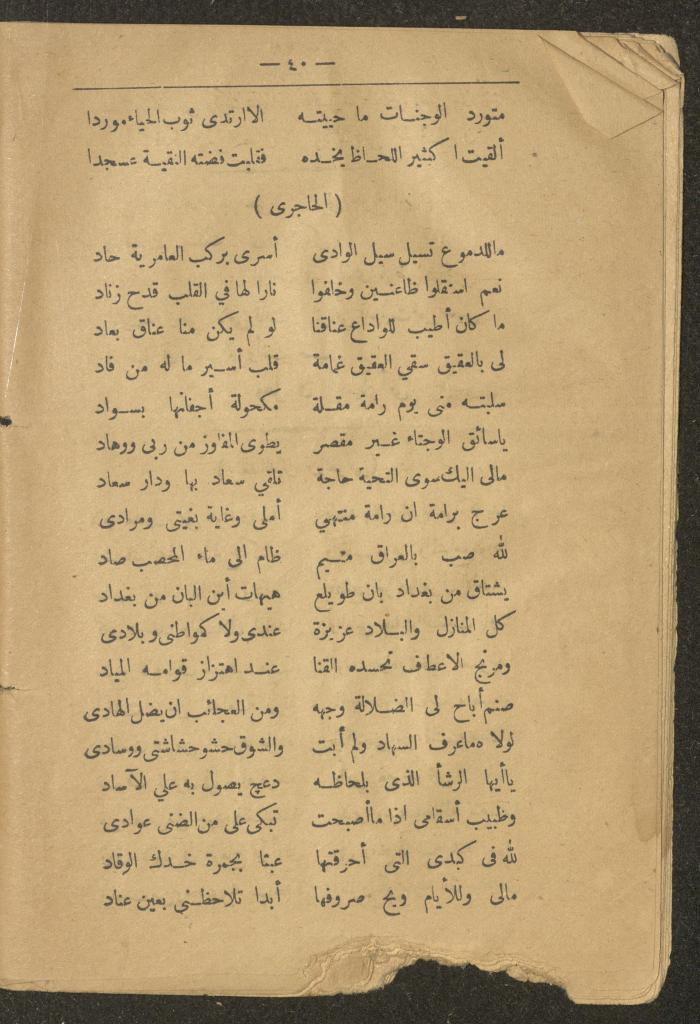 — ٤٠ —
متورد الوجنات ما حييته الا ارتدى ثوب الحياء موردا
ألقيت اكثير اللحاظ بخده فقلبت فضته النقية عسجدا
( الحاجرى )
ماللدموع تسيل سيل الوادى أسرى بركب العامرية حاد
نعم استقلوا ظاعنين وخلفوا نارا لها في القلب قدح زناد
ما كان أطيب للوادع عناقنا لو لم يكن منا عناق بعاد
لى بالعقيق سقي العقيق غمامة قلب أسير ما له من فاد
سلبته منى يوم رامة مقلة مكحولة أجفانها بسواد
ياسائق الوجناء غير مقصر يطوى المفاوز من ربى ووهاد
مالى اليك سوى التحية حاجة تلقي سعاد بها ودار سعاد
عرج برامة ان رامة منتهي أملى وغاية بغيتى ومرادى
لله صب بالعراق متيم ظام الى ماء المحصب صاد
يشتاق من بغداد بان طويلع هيهات أين البان من بغداد
كل المنازل والبلاد عزيزة عندى ولا كمواطنى وبلادى
ومرنح الاعطاف تحسده القنا عند اهتزاز قوامه المياد
صنم أباح لى الضلالة وجهه ومن العجائب ان يضل الهادى
لولاه ماعرف السهاد ولم أبت والشوق حشو حشاشتى ووسادى
ياأيها الرشأ الذى بلحاظه دعج يصول به علي الآساد
وطبيب أسقامى اذا ماأصبحت تبكى على من الضنى عوادى
لله فى كبدى التى أحرقتها عبثا بجمرة خدك الوقاد
مالى وللأيام ويح صروفها أبدا تلاحظنى بعين عناد